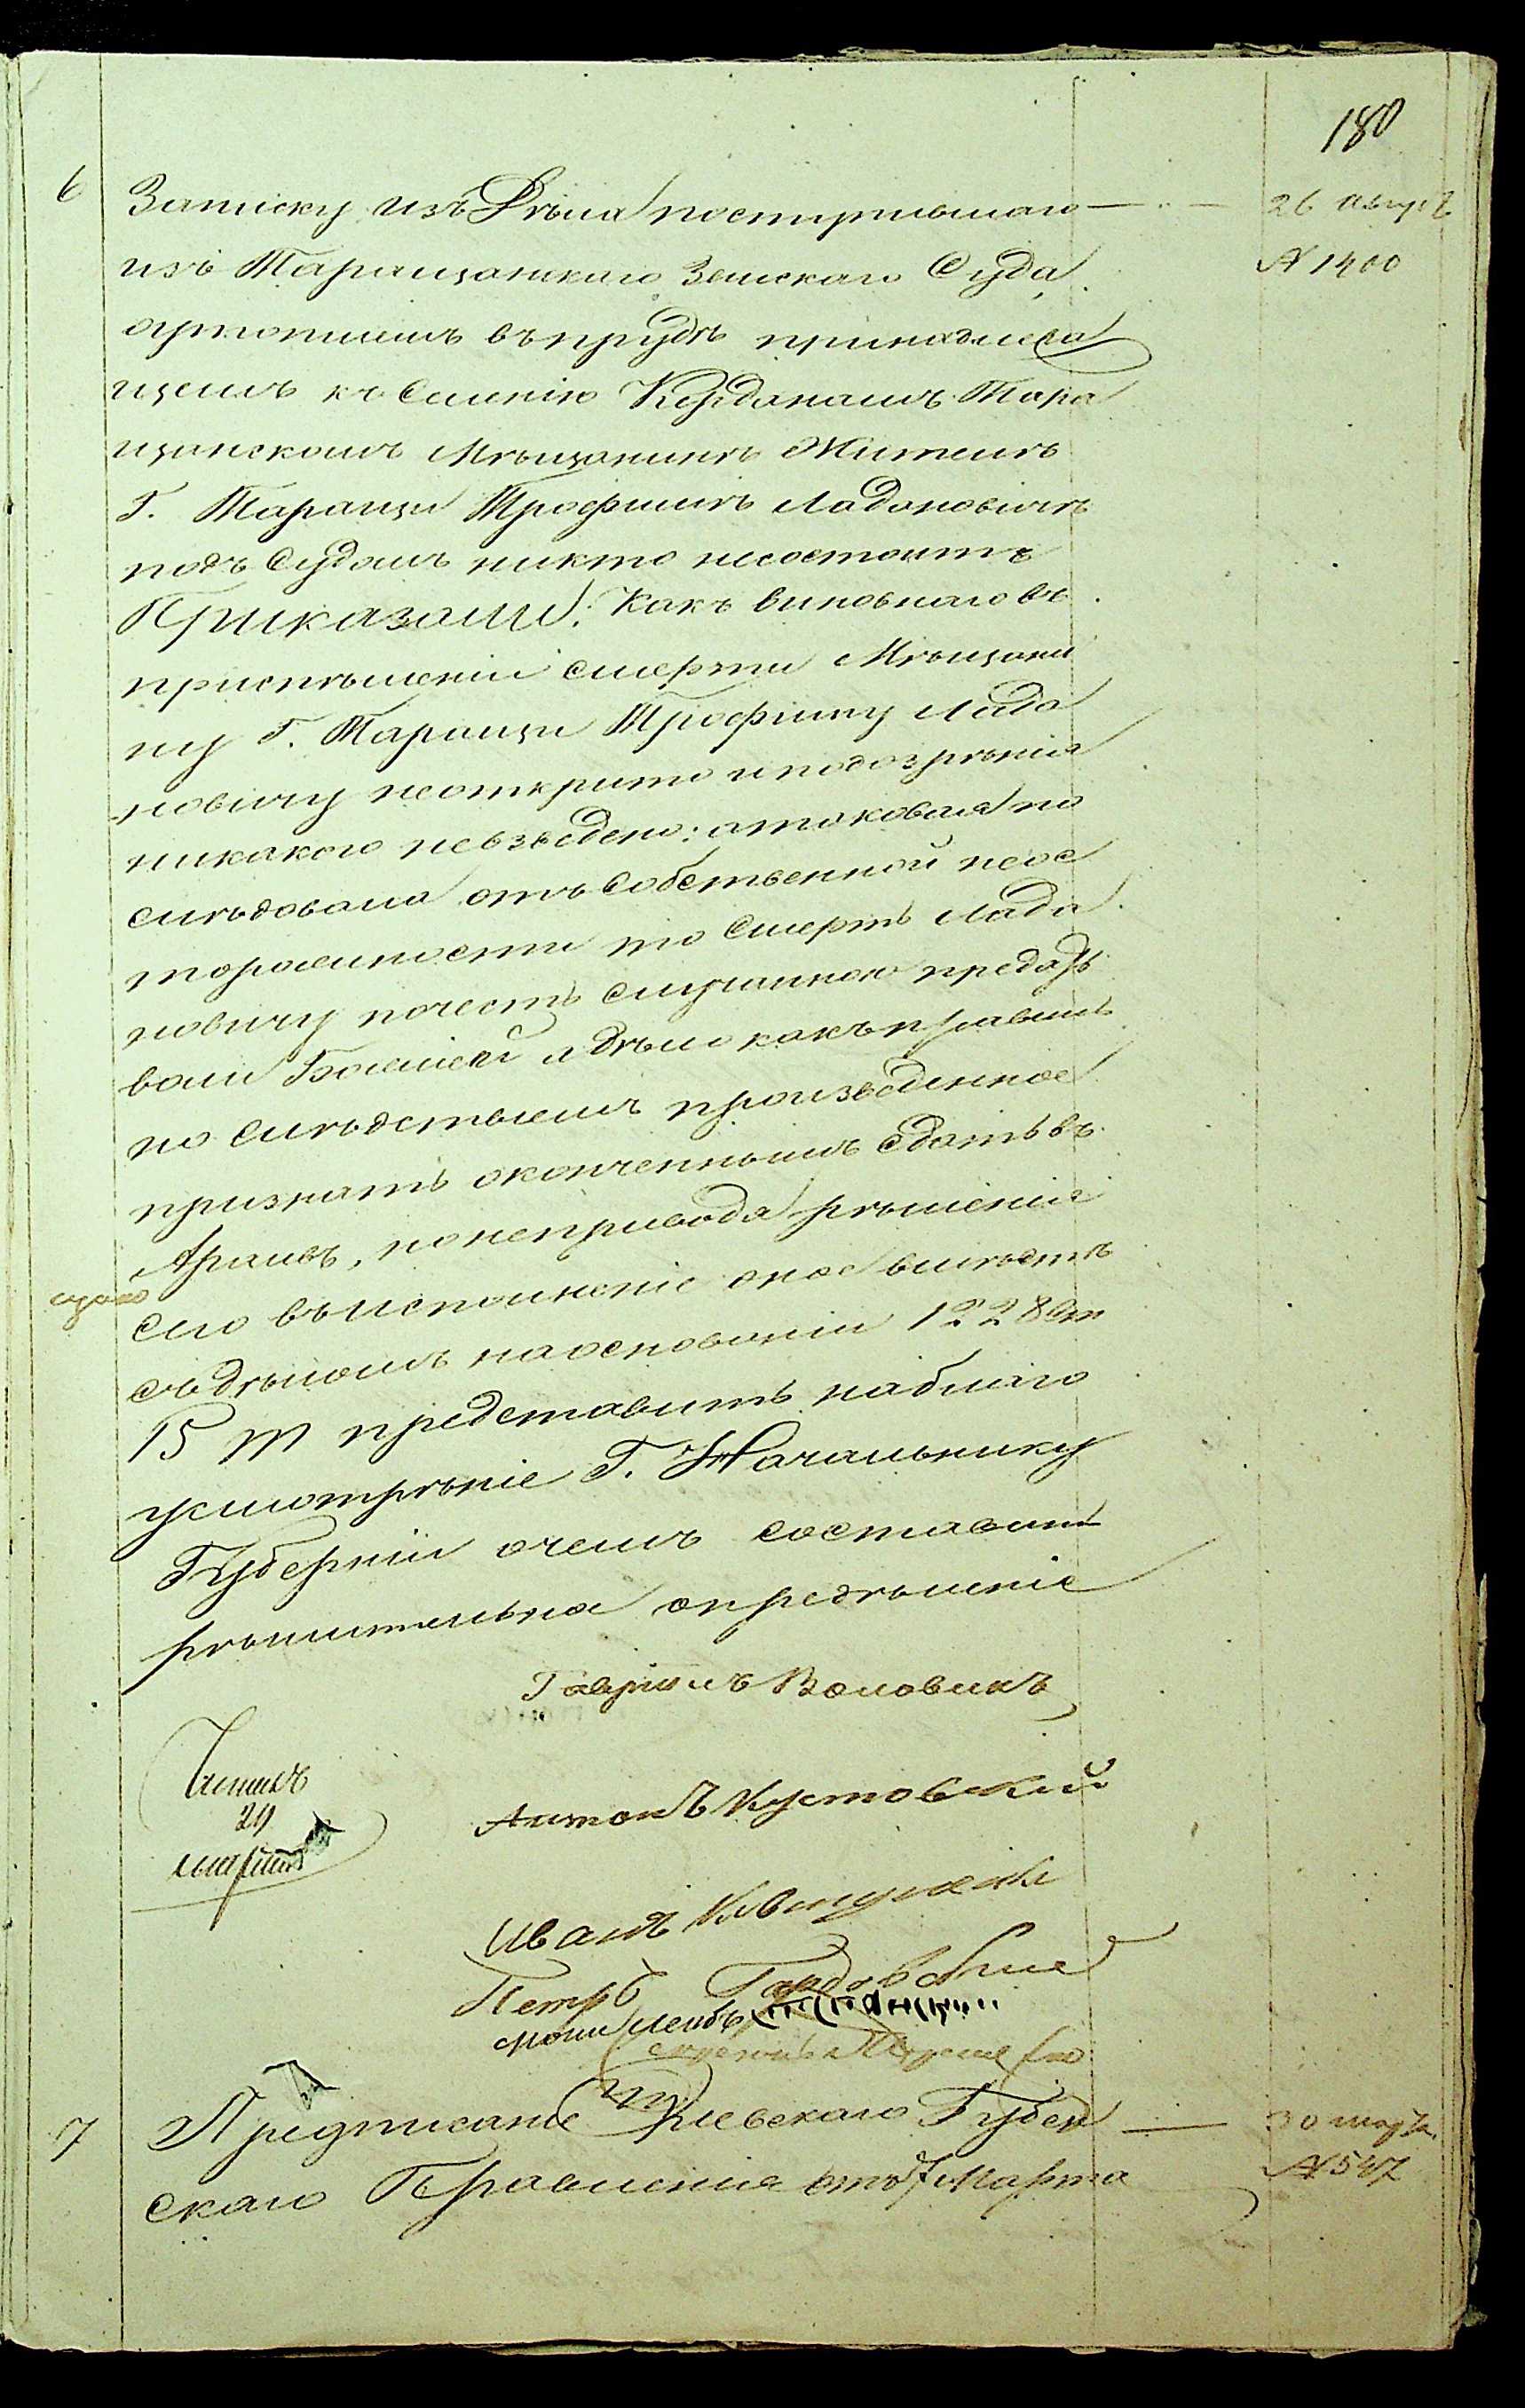 180
6 Записку изъ Дѣла поступившаго — 26 августа
изъ Таращанскаго Земскаго Суда № 1400
оутопшемъ въ прудѣ принадлежа
щемъ къ Селенію Кердонамъ Тара
щанскомъ Мѣщанинѣ Жителѣ
Г. Таращи Трофимѣ Ладановичѣ
подъ Судомъ никто несостоитъ
Приказали: Какъ виновнаго въ
приспѣшеніи смерти Мѣщани
ну Г. Таращи Трофиму Лада
новичу неоткрито и подозрѣнія
никакого невзведено: атаковая по
слѣдовала отъ Собственной неос
торожности то Смерть Лада
новичу почесть случайною предать
воли Божіей а дѣло какъ правиль
но Слѣдствіемъ произведенное
признать оконченнымъ сдать въ
Архивъ, но неприводя рѣшенія
сего въ исполненіе оное вмѣстѣ
съ дѣломъ на основаніи 1228 ст
15 т представить на благо
усмотрѣніе Г. Начальнику
Губерніи о чемъ составить
рѣшительное опредѣленіе
Гавриилъ Воловикъ
Антонъ Кустовский
Иванъ
Петръ
7 Предписаніе Кіевскаго Губерн — 30 марта
скаго Правленія отъ 7 Марта № 547